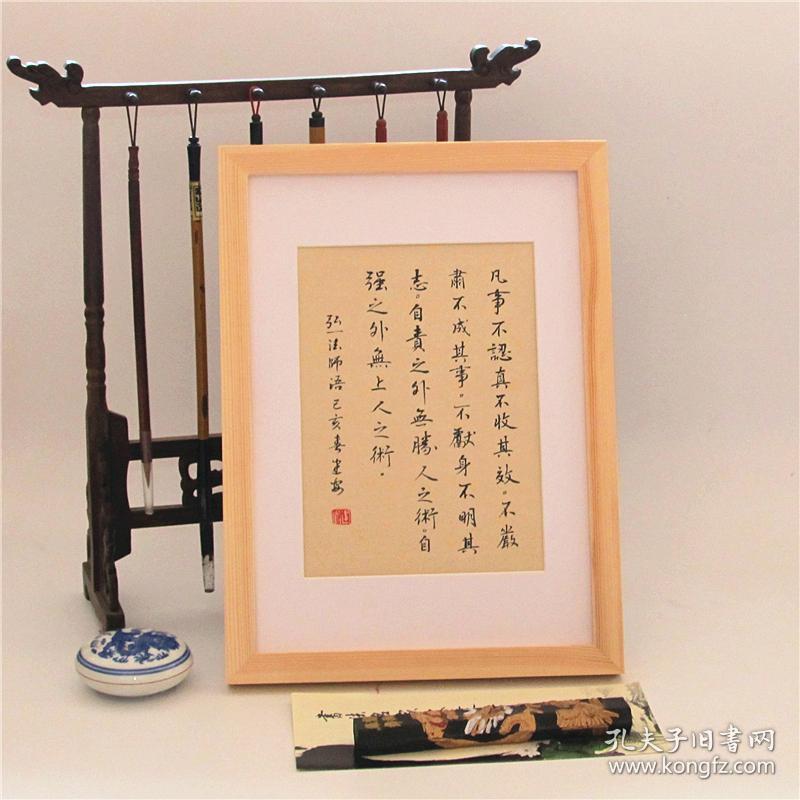 凡事不認真不收其效。不嚴
肅不成其事。不獻身不明其
志。自責之外無勝人之術。自
强之外無上人之術。
弘一法師语己亥春
孔夫子旧書网
www.kongfz.com